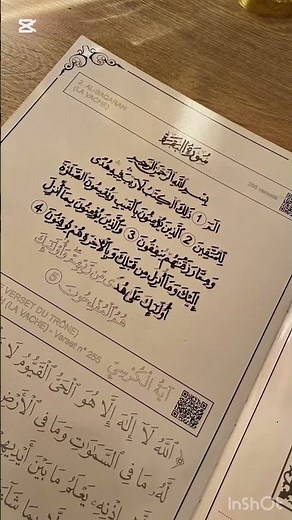 2. AL-BAQARAH
(LA VACHE)
286 Versets
سُورَةُ البَقَرَة
بِسْمِ اللَّهِ الرَّحْمَنِ الرَّحِيمِ
الٓمٓ 1 ذَٰلِكَ الْكِتَابُ لَا رَيْبَ فِيهِ هُدًى
لِلْمُتَّقِينَ 2 الَّذِينَ يُؤْمِنُونَ بِالْغَيْبِ وَيُقِيمُونَ الصَّلَاةَ
وَمِمَّا رَزَقْنَاهُمْ يُنفِقُونَ 3 وَالَّذِينَ يُؤْمِنُونَ بِمَا أُنزِلَ
إِلَيْكَ وَمَا أُنزِلَ مِن قَبْلِكَ وَبِالْآخِرَةِ هُمْ يُوقِنُونَ 4
أُولَٰئِكَ عَلَىٰ هُدًى مِّن رَّبِّهِمْ وَأُولَٰئِكَ
هُمُ الْمُفْلِحُونَ 5
VERSET DU TRÔNE)
(LA VACHE) - Verset n° 255
آيَةُ الْكُرْسِيِّ
اللَّهُ لَا إِلَٰهَ إِلَّا هُوَ الْحَيُّ الْقَيُّومُ لَا
لَهُ مَا فِي السَّمَاوَاتِ وَمَا فِي الْأَرْضِ
بِإِذْنِهِ يَعْلَمُ مَا بَيْنَ أَيْدِيهِمْ
بِمَا شَاءَ
CapCut
InShOt